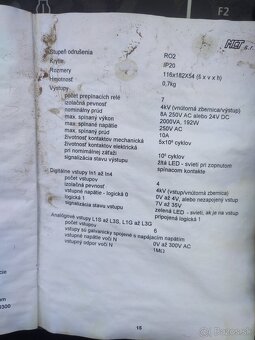 F2
HCT s.r.
Stupeň odrušenia RO2
Krytie IP20
Rozmery 116x182X54 (š x v x h)
Hmotnosť 0,7kg
Výstupy
počet prepínacích relé 7
izolačná pevnosť 4kV (vnútorná zbernica/výstup)
nominálny prúd 8A 250V AC alebo 24V DC
max. spínaný výkon 2000VA, 192W
max. spínané napätie 250V AC
max. spínaný prúd 10A
životnosť kontaktov mechanická 5x10⁶ cyklov
životnosť kontaktov elektrická
pri nominálnej záťaži 10⁵ cyklov
signalizácia stavu výstupu žltá LED - svieti pri zopnutom
spínacom kontakte
Digitálne vstupy In1 až In4
počet vstupov 4
izolačná pevnosť 4kV (vstup/vnútorná zbernica)
vstupné napätie - logická 0 0V až 4V, alebo nezapojený vstup
logická 1 7V až 35V
signalizácia stavu vstupu zelená LED - svieti, ak je na vstup
pripojená logická 1
Analógové vstupy L1S až L3S, L1G až L3G
počet vstupov 6
vstupy sú galvanicky spojené s napájacím napätím
vstupné napätie voči N 0V až 300V AC
vstupný odpor voči N 1MΩ
15